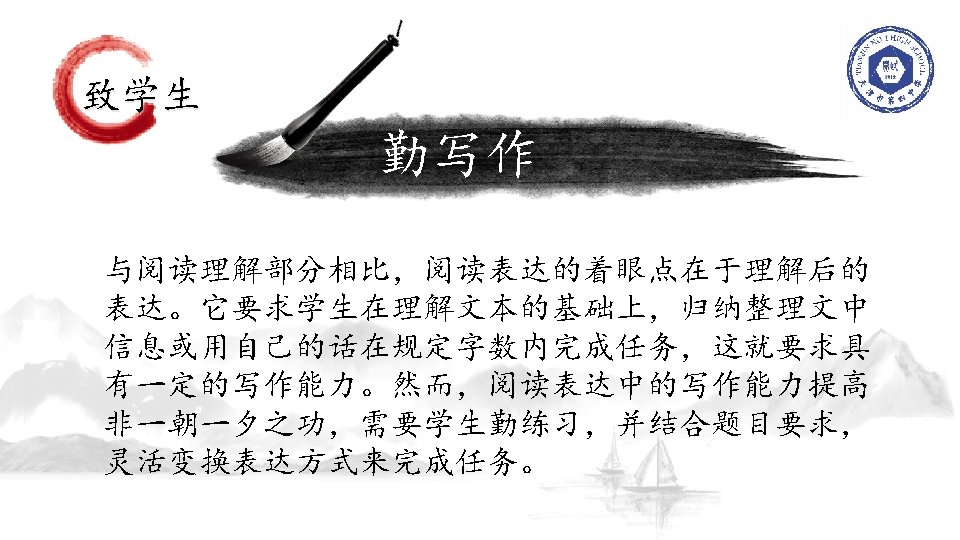 致学生
TIANJIN NO 1 HIGH SCHOOL
1912
勤写作
与阅读理解部分相比，阅读表达的着眼点在于理解后的
表达。它要求学生在理解文本的基础上，归纳整理文中
信息或用自己的话在规定字数内完成任务，这就要求具
有一定的写作能力。然而，阅读表达中的写作能力提高
非一朝一夕之功，需要学生勤练习，并结合题目要求，
灵活变换表达方式来完成任务。